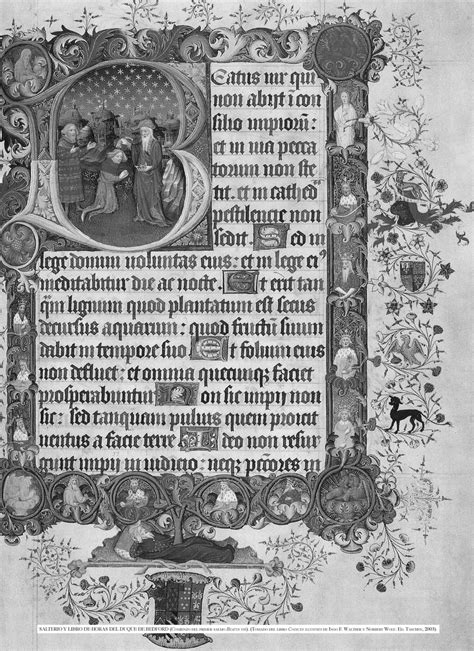 Beatus uir qui
non abijt ī con
silio impiorum:
et in uia pecca
torum non ste
tit. et in cathed
pestilencie non
sedit. Sed in
lege domini uoluntas eius: et in lege ei
meditabitur die ac nocte. Et erit tan
qm lignum quod plantatum est secus
decursus aquarum: quod fructū suum
dabit in tempore suo Et folium eius
non defluet: et omnia quecumqꝫ faciet
prosperabuntur Non sic impij non
sic: sed tanquam puluis quem proicit
uentus a facie terre Ideo non resur
gunt impij in iudicio: neqꝫ pccōres in
SALTERIO Y LIBRO DE HORAS DEL DUQUE DE BEDFORD (Comienzo del primer salmo: Beatus vir). (Tomado del libro Códices ilustres de Ingo F. Walther y Norbert Wolf. Ed. Taschen, 2003).